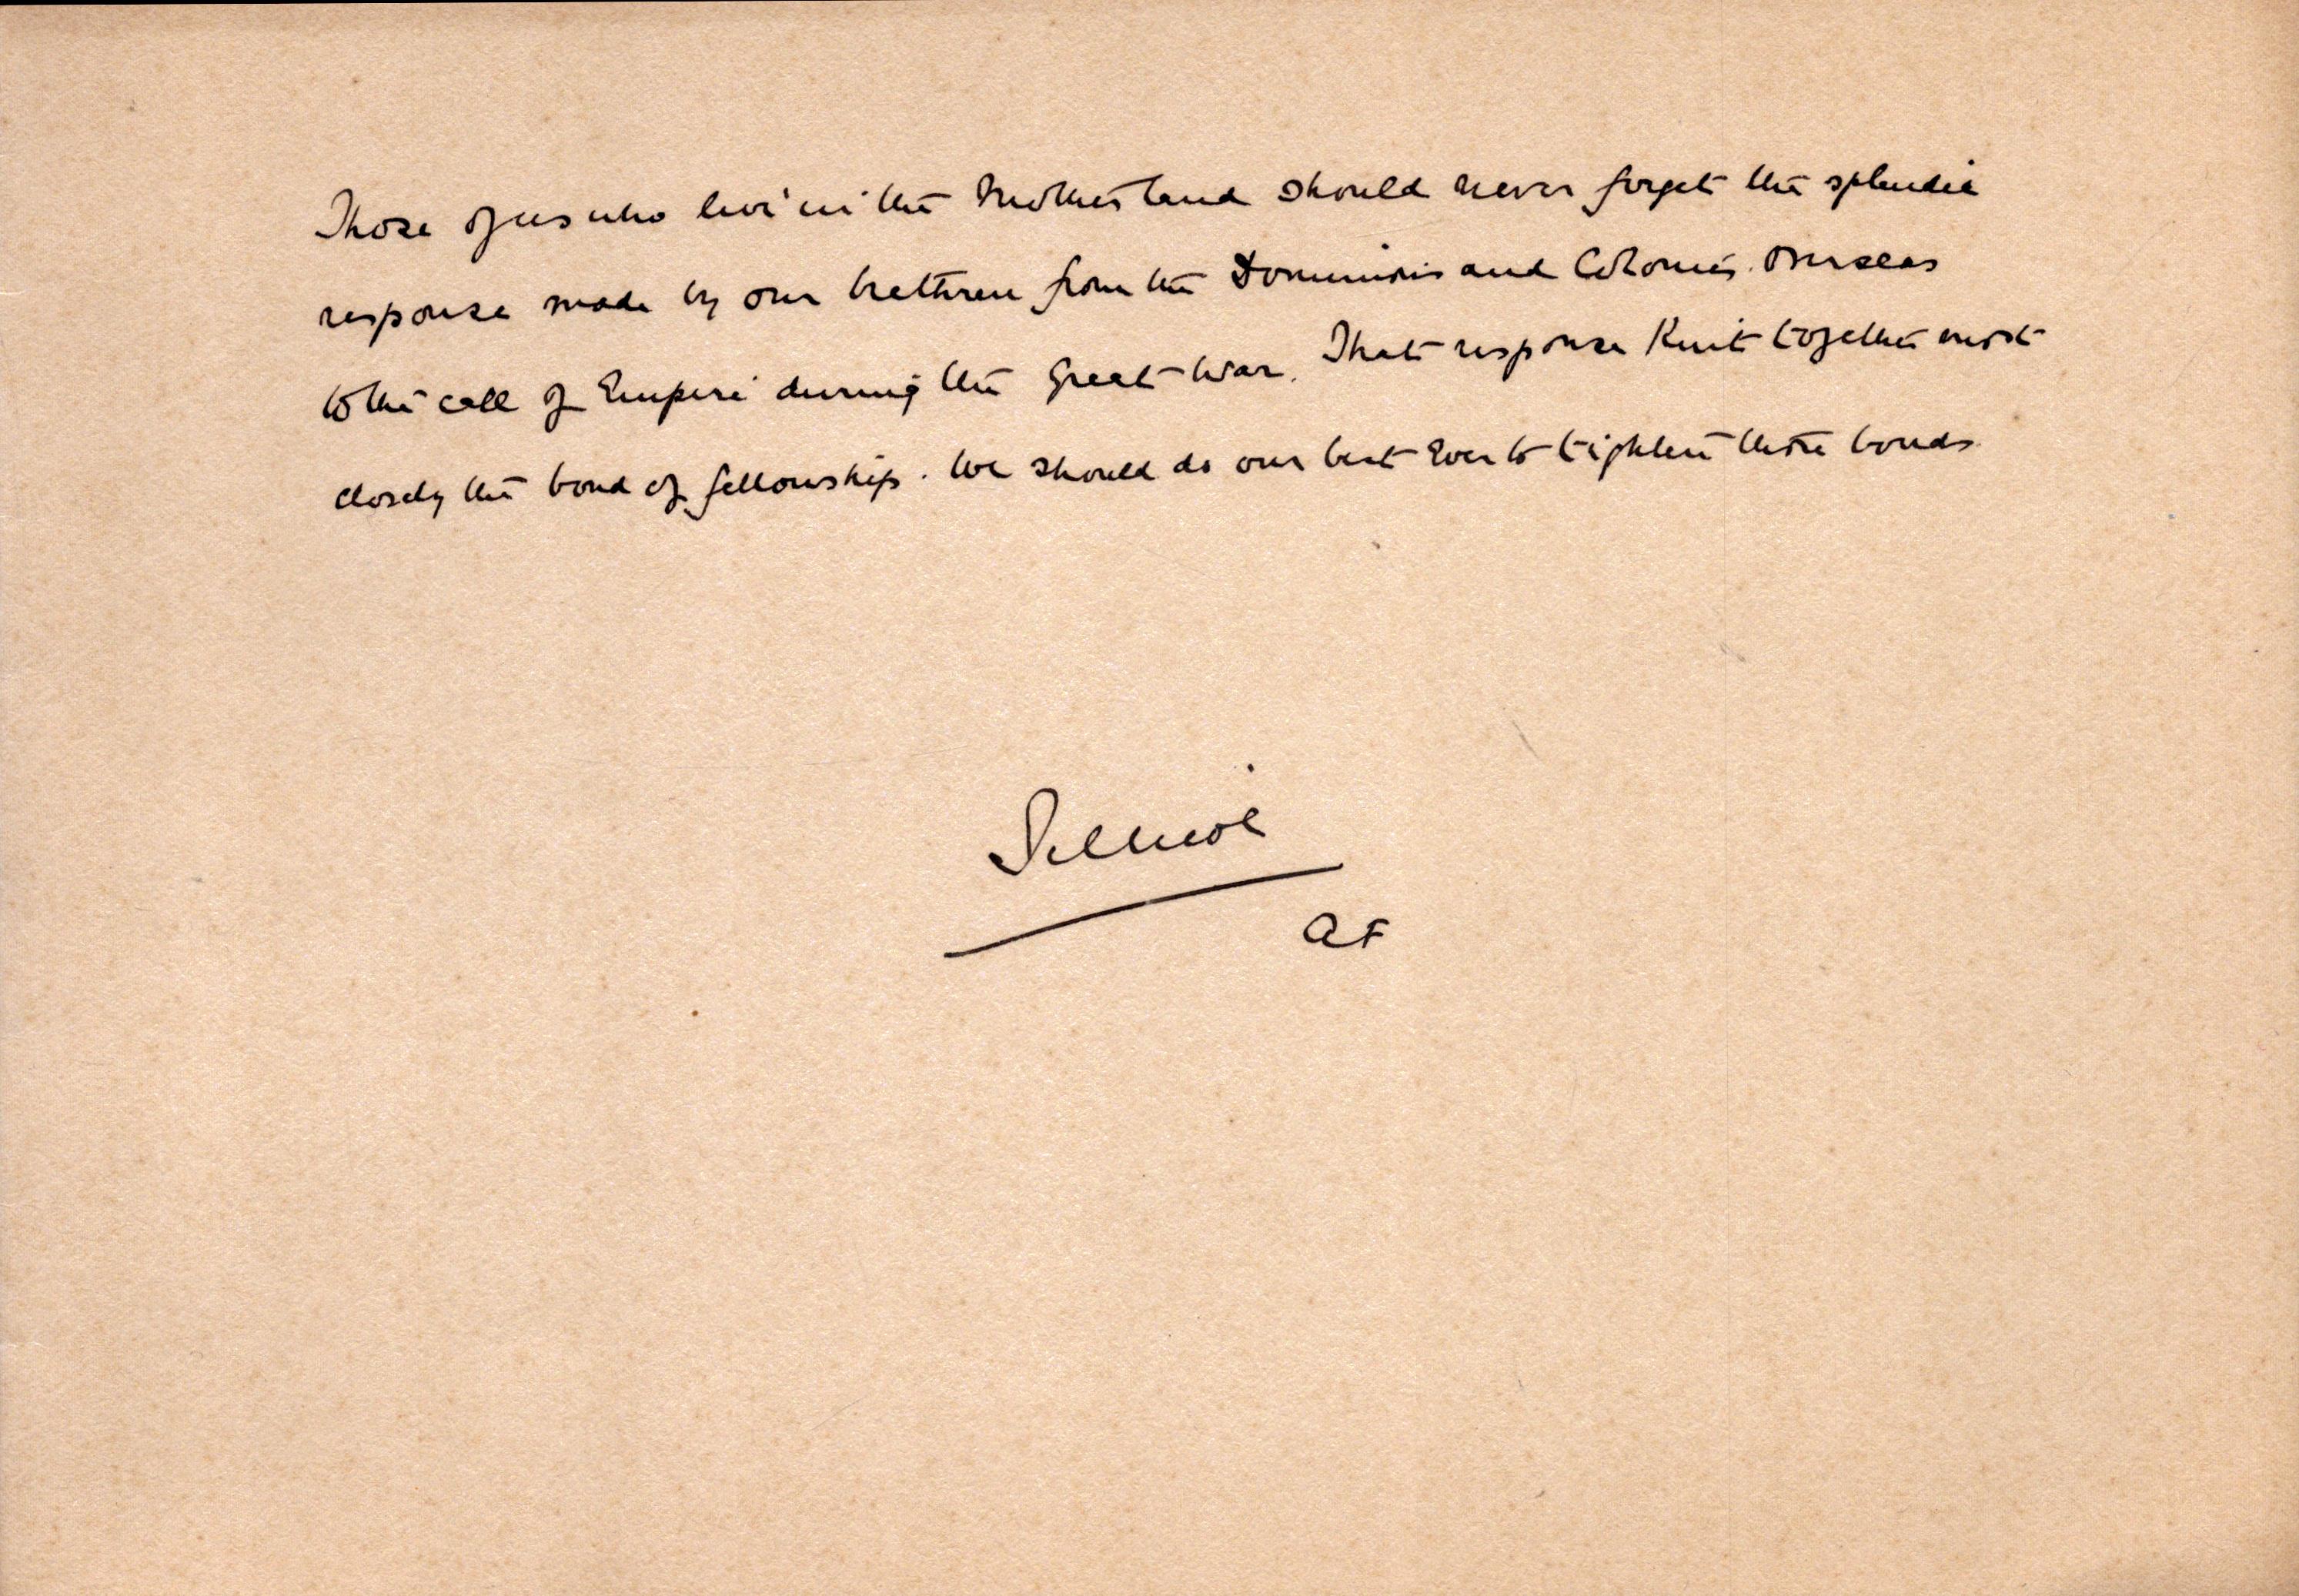 Those of us who live in the Motherland should never forget the splendid
response made by our brethren from the Dominions and Colonies Overseas
to the call of Empire during the Great War. That response Knit together most
closely the bond of fellowship. We should do our best Ever to tighten those bonds
Jellicoe
AF